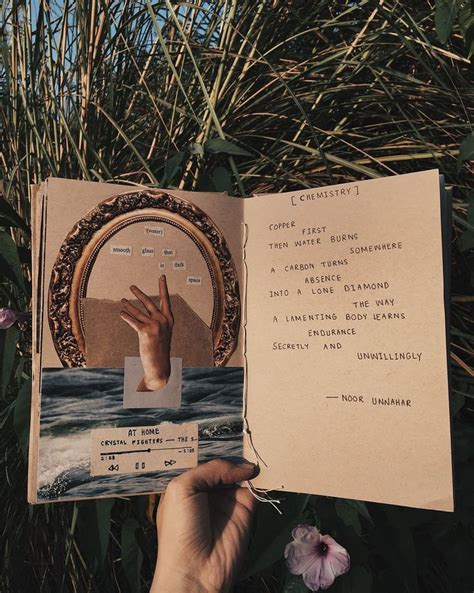 (water)
smooth glass that
is dark
space
AT HOME
CRYSTAL FIGHTERS — THE S..
[ CHEMISTRY ]
COPPER FIRST
THEN WATER BURNS
SOMEWHERE
A CARBON TURNS
ABSENCE
INTO A LONE DIAMOND
THE WAY
A LAMENTING BODY LEARNS
ENDURANCE
SECRETLY AND
UNWILLINGLY
— NOOR UNNAHAR